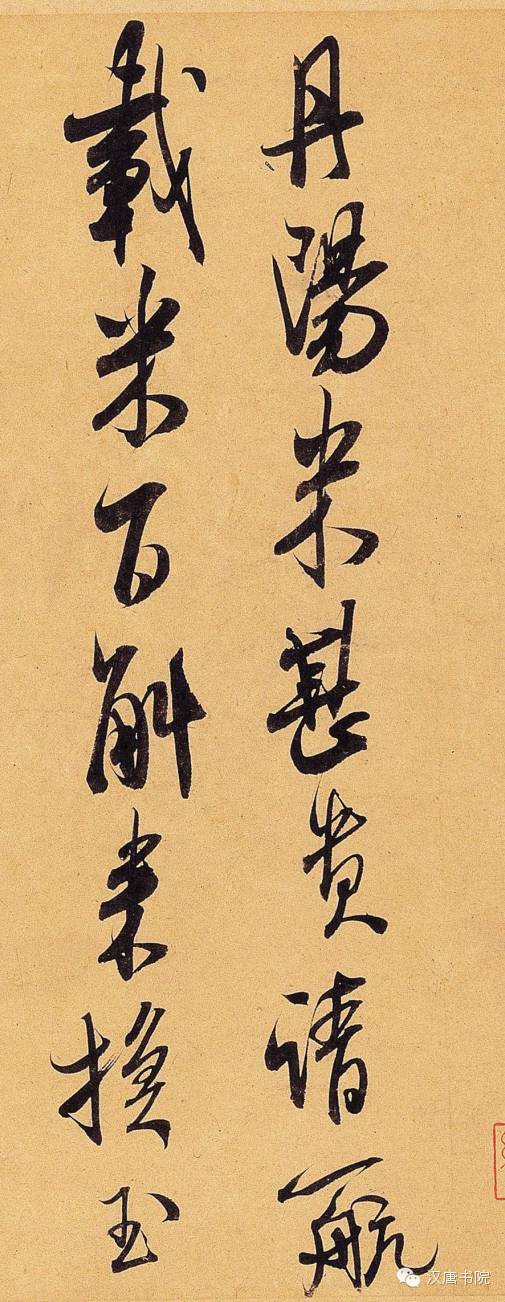 丹陽米甚貴請一航
載米百斛来換玉
汉唐书院